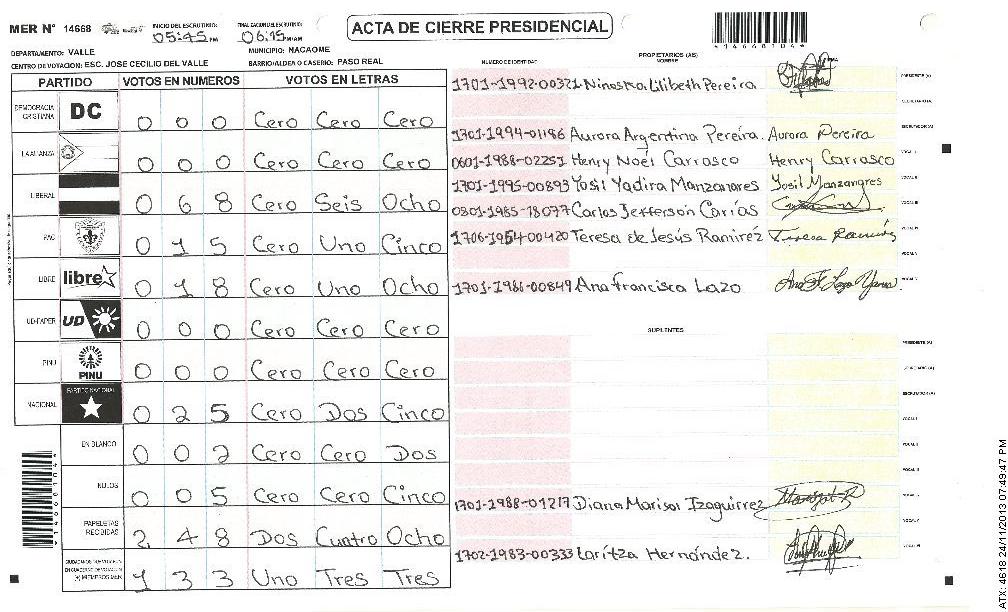 MER N° 14668
INICIO DEL ESCRUTINIO: 05:45 PM
FINALIZACION DEL ESCRUTINIO: 06:15
ACTA DE CIERRE PRESIDENCIAL
DEPARTAMENTO: VALLE
MUNICIPIO: NACAOME
CENTRO DE VOTACION: ESC. JOSE CECILIO DEL VALLE
BARRIO/ALDEA O CASERIO: PASO REAL
PARTIDO VOTOS EN NUMEROS VOTOS EN LETRAS
DEMOCRACIA CRISTIANA DC 0 0 0 Cero Cero Cero
LA ALIANZA 0 0 0 Cero Cero Cero
LIBERAL 0 6 8 Cero Seis Ocho
PAC 0 1 5 Cero Uno Cinco
LIBRE libre 0 1 8 Cero Uno Ocho
UD-FAPER UD 0 0 0 Cero Cero Cero
PINU PINU 0 0 0 Cero Cero Cero
NACIONAL PARTIDO NACIONAL 0 2 5 Cero Dos Cinco
EN BLANCO 0 0 2 Cero Cero Dos
NULOS 0 0 5 Cero Cero Cinco
PAPELETAS RECIBIDAS 2 4 8 Dos Cuatro Ocho
1 3 3 Uno Tres Tres
NUMERO DE IDENTIDAD
PROPIETARIOS (AS)
NOMBRE
1701-1992-00321 Ninoska Lilibeth Pereira
PRESIDENTE (A)
SECRETARIO/A
1701-1994-01186 Aurora Argentina Pereira. Aurora Pereira
ESCRUTADOR (A)
0601-1988-02251 Henry Noél Carrasco Henry Carrasco
1701-1995-00893 Yosil Yadira Manzanares Yosil Manzanares
0801-1985-18077 Carlos Jefferson Carías
1706-1954-00420 Teresa de Jesús Ramirez Teresa Ramirez
1701-1986-00849 Ana francisca Lazo
SUPLENTES
PRESIDENTE (A)
SECRETARIO (A)
ESCRUTADOR (A)
1701-1988-01217 Diana Marisol Izaguirrez
1702-1983-00333 Laritza Hernández.
ATX: 4618 24/11/2013 07:49:47 PM